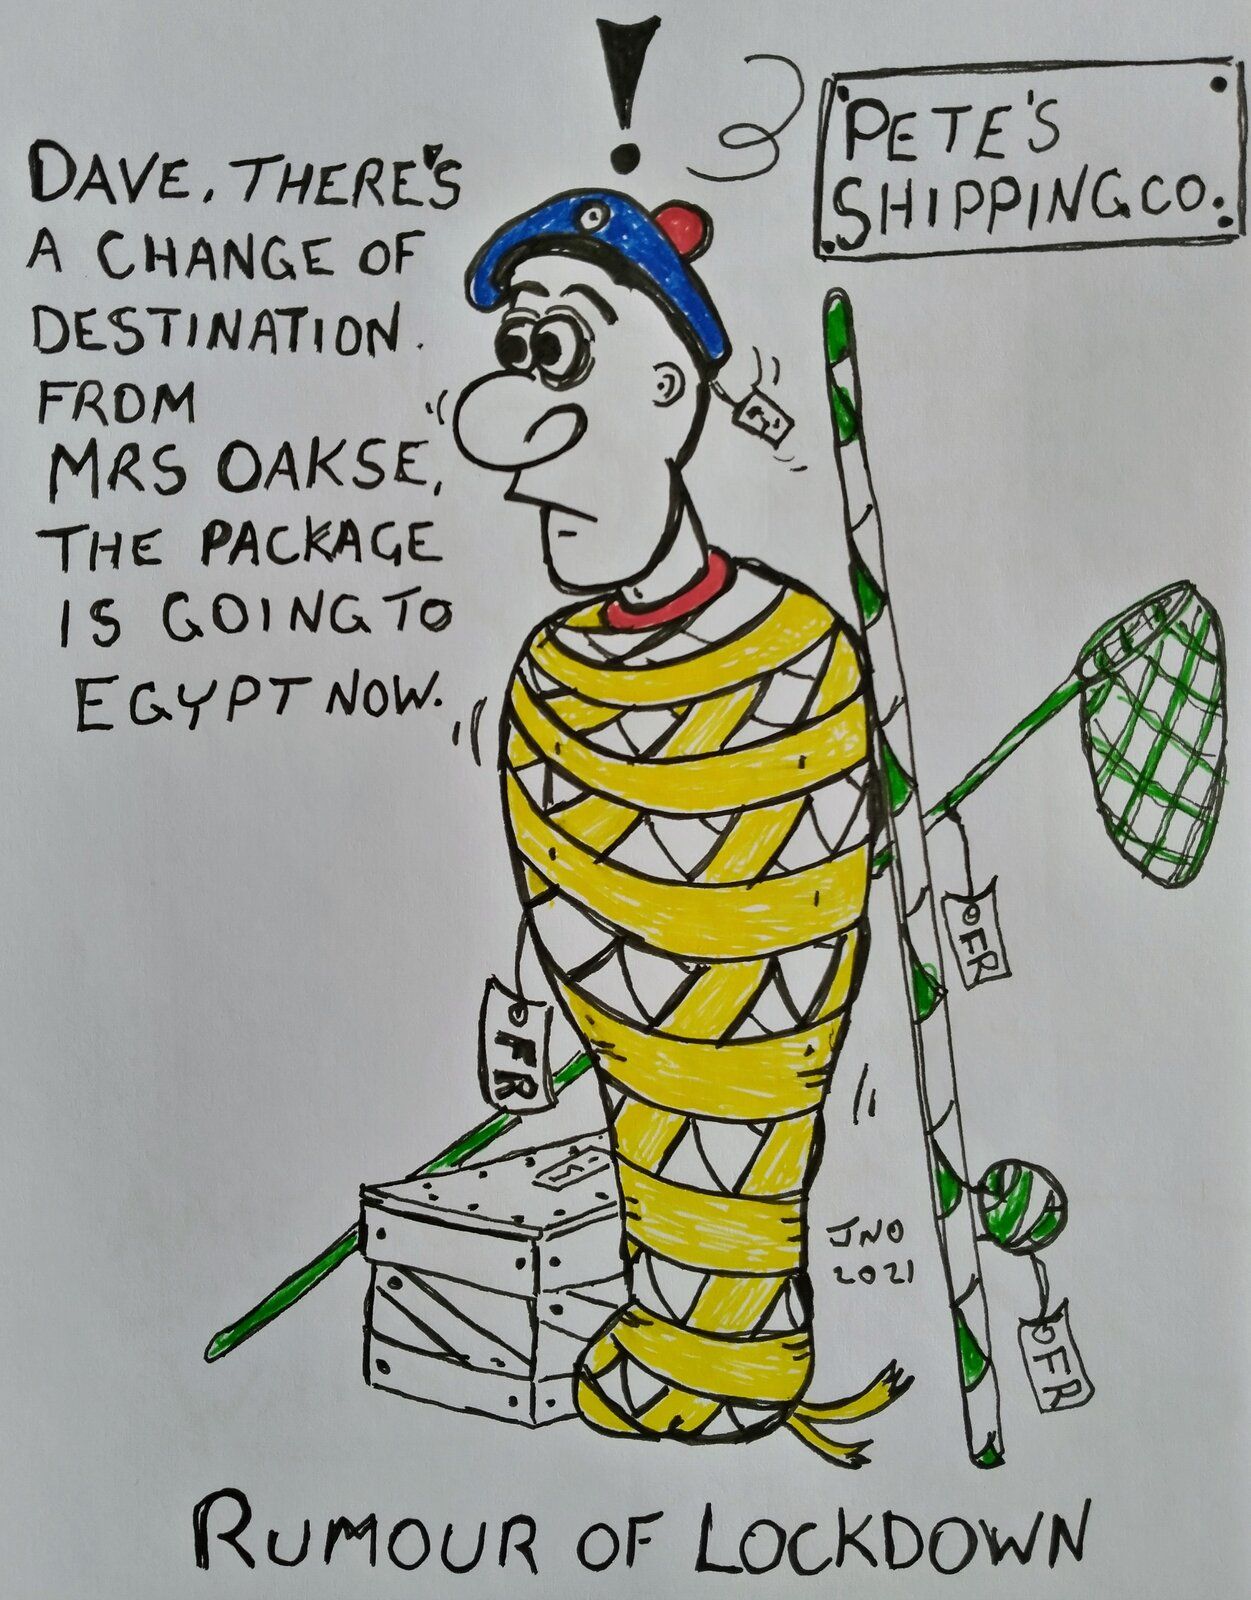 !
PETE'S
SHIPPING CO.
DAVE, THERE'S
A CHANGE OF
DESTINATION.
FROM
MRS OAKSE,
THE PACKAGE
IS GOING TO
EGYPT NOW.
FR
FR
FR
JNO
2021
RUMOUR OF LOCKDOWN